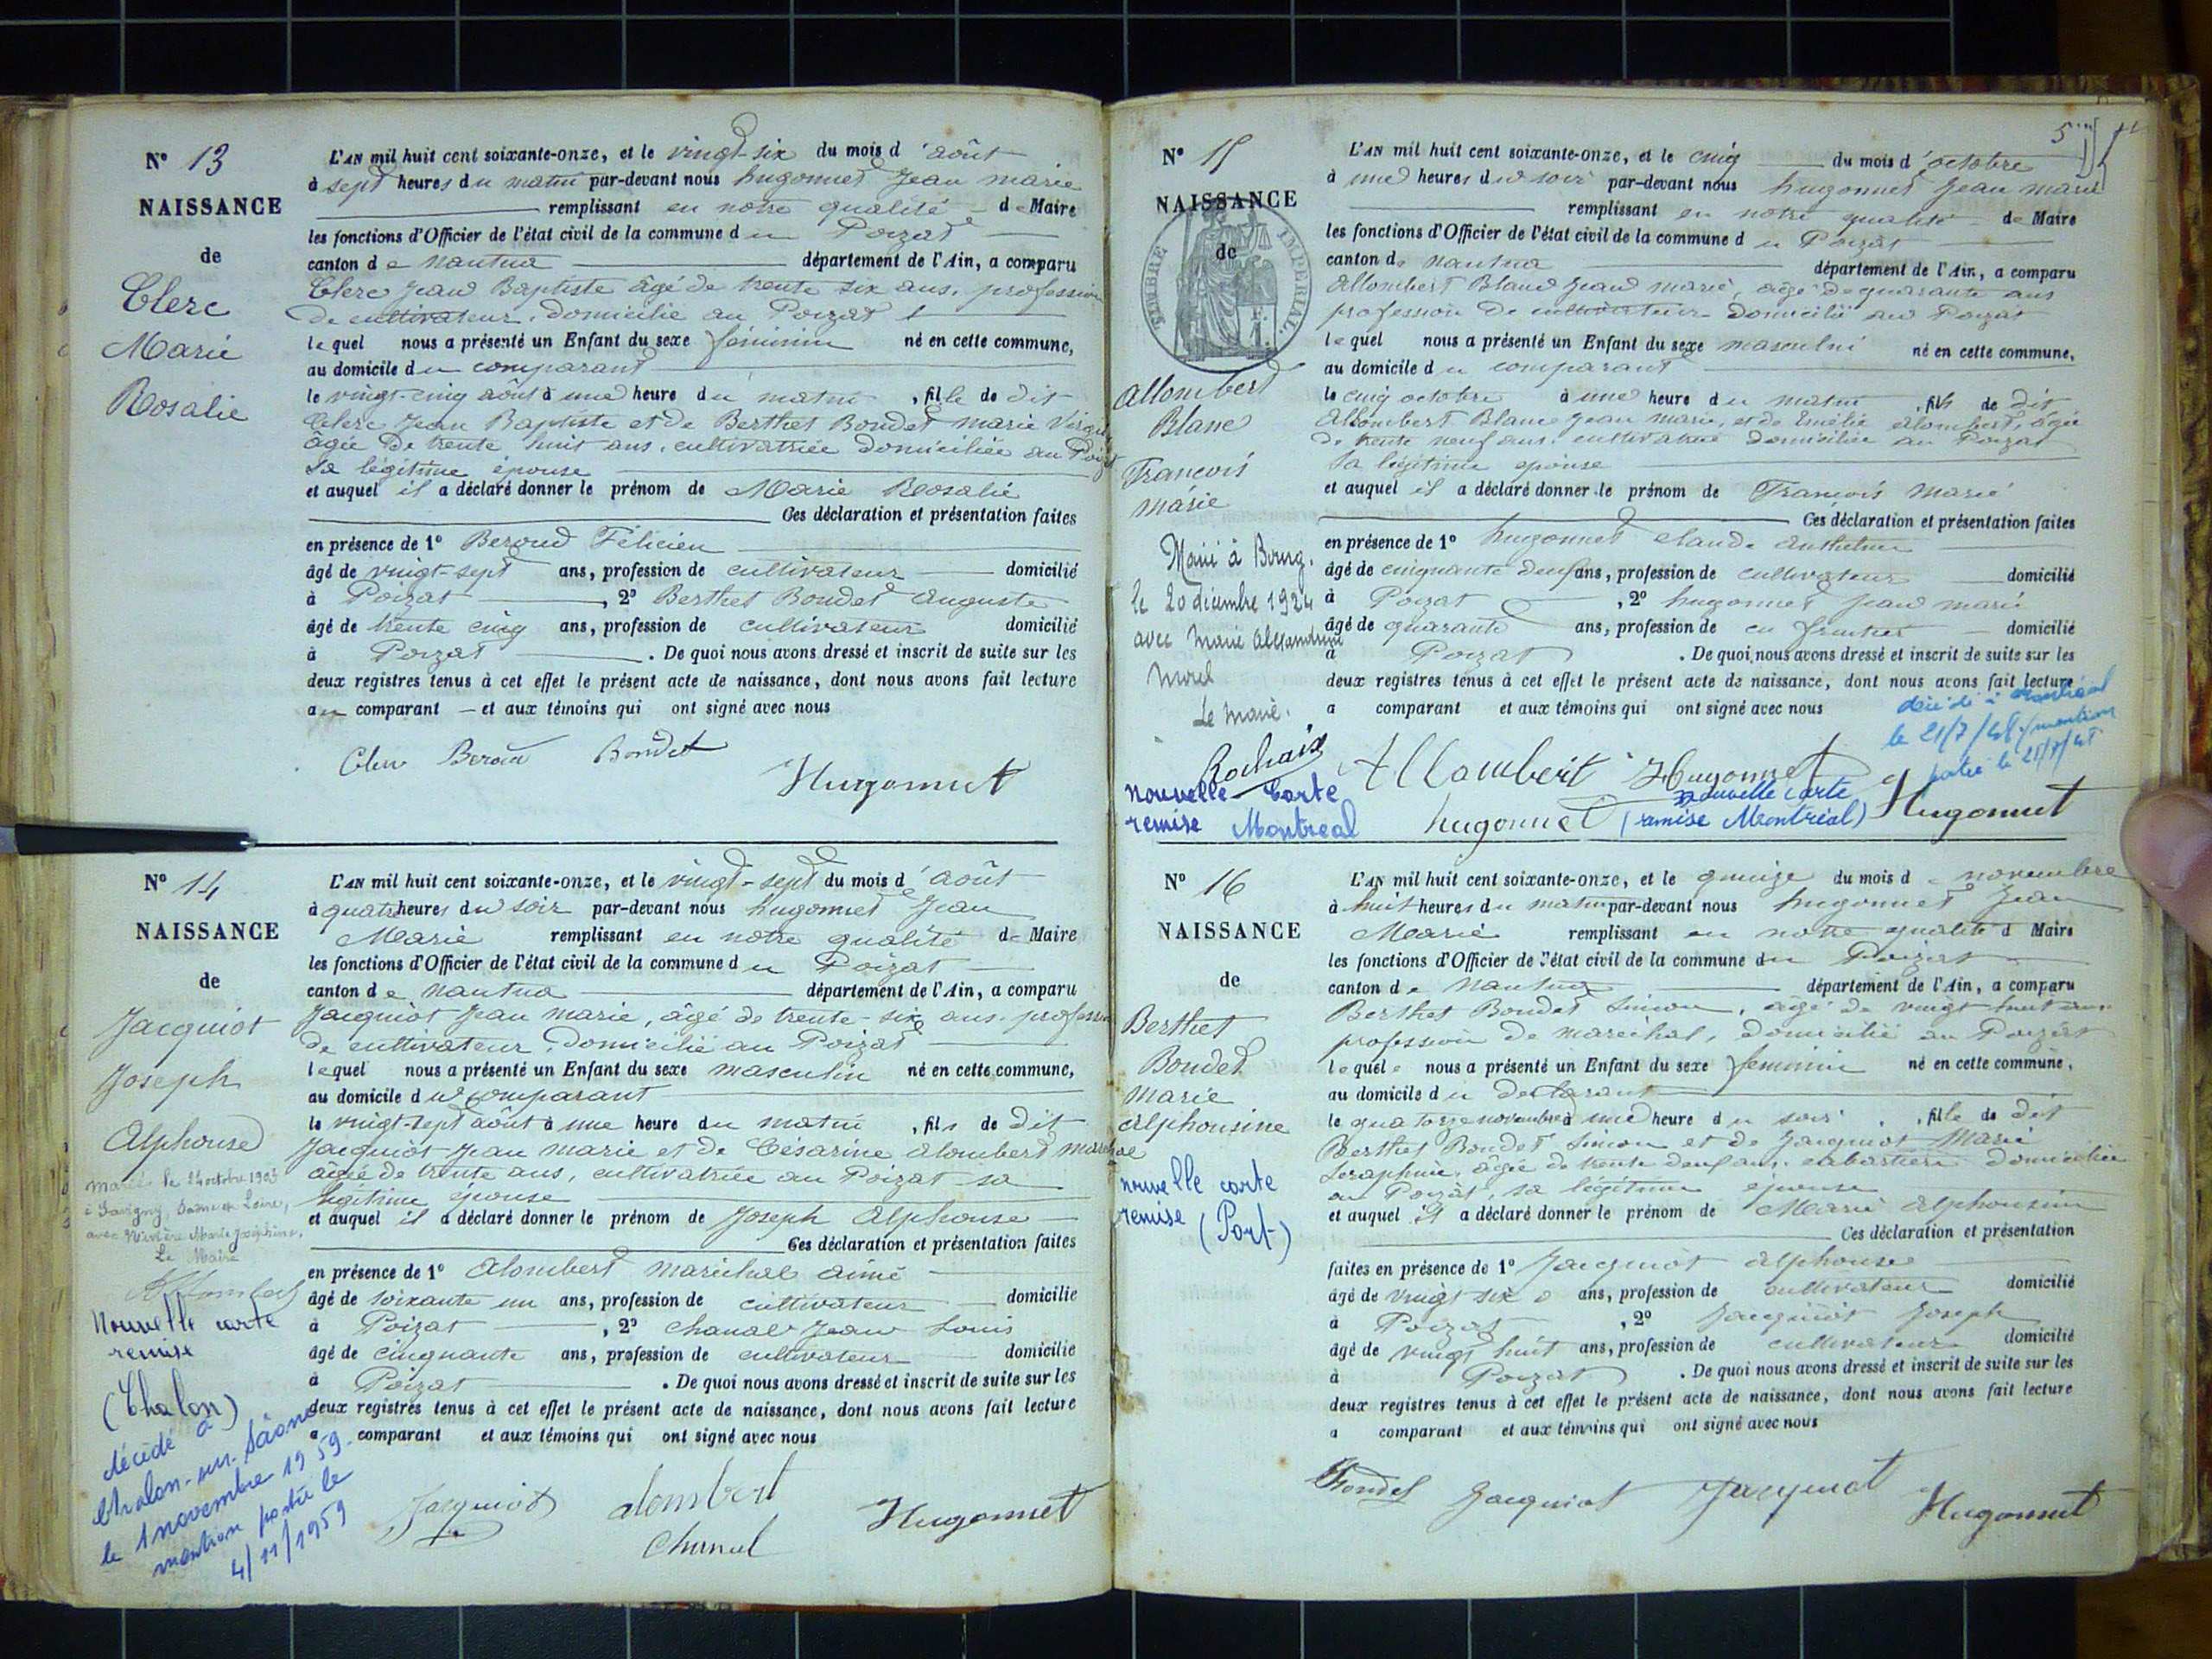 N° 13
NAISSANCE
de
Clerc
Marie
Rosalie
L'AN mil huit cent soixante-onze, et le vingt-six du mois d'août
à sept heures du matin par-devant nous hugonnet Jean marie
remplissant en notre qualité de Maire
les fonctions d'Officier de l'état civil de la commune du Poizat
canton de nantua département de l'Ain, a comparu
Clerc Jean Baptiste âgé de trente six ans, profession
de cultivateur, domicilié au Poizat
lequel nous a présenté un Enfant du sexe féminin né en cette commune,
au domicile du comparant
le vingt-cinq août à une heure du matin, fille de dit
Clerc Jean Baptiste et de Berthet Bondet marie
âgée de trente huit ans, cultivatrice domiciliée au Poizat
sa légitime épouse
et auquel il a déclaré donner le prénom de Marie Rosalie
Ces déclaration et présentation faites
en présence de 1° Beroud Félicien
âgé de vingt-sept ans, profession de cultivateur domicilié
à Poizat, 2° Berthet Bondet auguste
âgé de trente cinq ans, profession de cultivateur domicilié
à Poizat. De quoi nous avons dressé et inscrit de suite sur les
deux registres tenus à cet effet le présent acte de naissance, dont nous avons fait lecture
au comparant et aux témoins qui ont signé avec nous
Clerc Bondet
Hugonnet
N° 14
NAISSANCE
de
Jacquiot
Joseph
Alphonse
marié le 24 octobre 1903
à Savigny, Saône et Loire,
avec Marie Joséphine.
Le Maire
Nouvelle carte
remise
(Chalon)
décédé à
Chalon-sur-Saône
le 1 novembre 1959.
mention portée le
4/11/1959
L'AN mil huit cent soixante-onze, et le vingt-sept du mois d'août
à quatre heures du soir par-devant nous hugonnet Jean
Marie remplissant en notre qualité de Maire
les fonctions d'Officier de l'état civil de la commune du Poizat
canton de nantua département de l'Ain, a comparu
Jacquiot Jean marie, âgé de trente-six ans, profession
de cultivateur, domicilié au Poizat
lequel nous a présenté un Enfant du sexe masculin né en cette commune,
au domicile du comparant
le vingt-sept août à une heure du matin, fils de dit
Jacquiot Jean marie et de Césarine alombert maréchal
âgée de trente ans, cultivatrice au Poizat sa
légitime épouse
et auquel il a déclaré donner le prénom de Joseph Alphonse
Ces déclaration et présentation faites
en présence de 1° Alombert maréchal aimé
âgé de soixante un ans, profession de cultivateur domicilié
à Poizat, 2° chanal Jean Louis
âgé de cinquante ans, profession de cultivateur domicilié
à Poizat. De quoi nous avons dressé et inscrit de suite sur les
deux registres tenus à cet effet le présent acte de naissance, dont nous avons fait lecture
a comparant et aux témoins qui ont signé avec nous
Jacquiot alombert Hugonnet
Chanal
5
N° 15
NAISSANCE
de
TIMBRE IMPERIAL
allombert
Blanc
François
marie
Marié à Bourg.
le 20 décembre 1924
avec Marie Alexandrine
Morel
Le maire.
Rochaix
nouvelle carte
remise Montreal
L'AN mil huit cent soixante-onze, et le cinq du mois d'octobre
à une heures du soir par-devant nous hugonnet Jean marie
remplissant en notre qualité de Maire
les fonctions d'Officier de l'état civil de la commune du Poizat
canton de nantua département de l'Ain, a comparu
allombert Blanc Jean marie, âgé de quarante ans
profession de cultivateur domicilié au Poizat
lequel nous a présenté un Enfant du sexe masculin né en cette commune,
au domicile du comparant
le cinq octobre à une heure du matin, fils de dit
allombert Blanc Jean marie, et de Emélie alombert, âgée
de trente neuf ans, cultivatrice domiciliée au Poizat
sa légitime épouse
et auquel il a déclaré donner le prénom de François marie
Ces déclaration et présentation faites
en présence de 1° hugonnet claude anthelme
âgé de cinquante deux ans, profession de cultivateur domicilié
à Poizat, 2° hugonnet Jean marie
âgé de quarante ans, profession de fruitier domicilié
à Poizat. De quoi nous avons dressé et inscrit de suite sur les
deux registres tenus à cet effet le présent acte de naissance, dont nous avons fait lecture
a comparant et aux témoins qui ont signé avec nous
décédé à Montréal
le 21/7/48 mention
portée le
Allombert Hugonnet
nouvelle carte
hugonnet (remise Montréal) Hugonnet
N° 16
NAISSANCE
de
Berthet
Bondet
marie
alphonsine
nouvelle carte
remise (Port)
L'AN mil huit cent soixante-onze, et le quinze du mois de novembre
à huit heures du matin par-devant nous hugonnet Jean
Marie remplissant en notre qualité d Maire
les fonctions d'Officier de l'état civil de la commune du Poizat
canton de nantua département de l'Ain, a comparu
Berthet Bondet Simon, âgé de vingt huit ans
profession de maréchal, domicilié au Poizat
lequel nous a présenté un Enfant du sexe féminin né en cette commune,
au domicile du déclarant
le quatorze novembre à une heure du soir, fille de dit
Berthet Bondet Simon et de Jacquiot Marie
Séraphine, âgée de trente deux ans, cabaretière domiciliée
au Poizat, sa légitime épouse
et auquel il a déclaré donner le prénom de Marie alphonsine
Ces déclaration et présentation
faites en présence de 1° Jacquiot alphonse
âgé de vingt six ans, profession de cultivateur domicilié
à Poizat, 2° Jacquiot Joseph
âgé de vingt huit ans, profession de cultivateur domicilié
à Poizat. De quoi nous avons dressé et inscrit de suite sur les
deux registres tenus à cet effet le présent acte de naissance, dont nous avons fait lecture
a comparant et aux témoins qui ont signé avec nous
Bondet Jacquiot Jacquiot Hugonnet